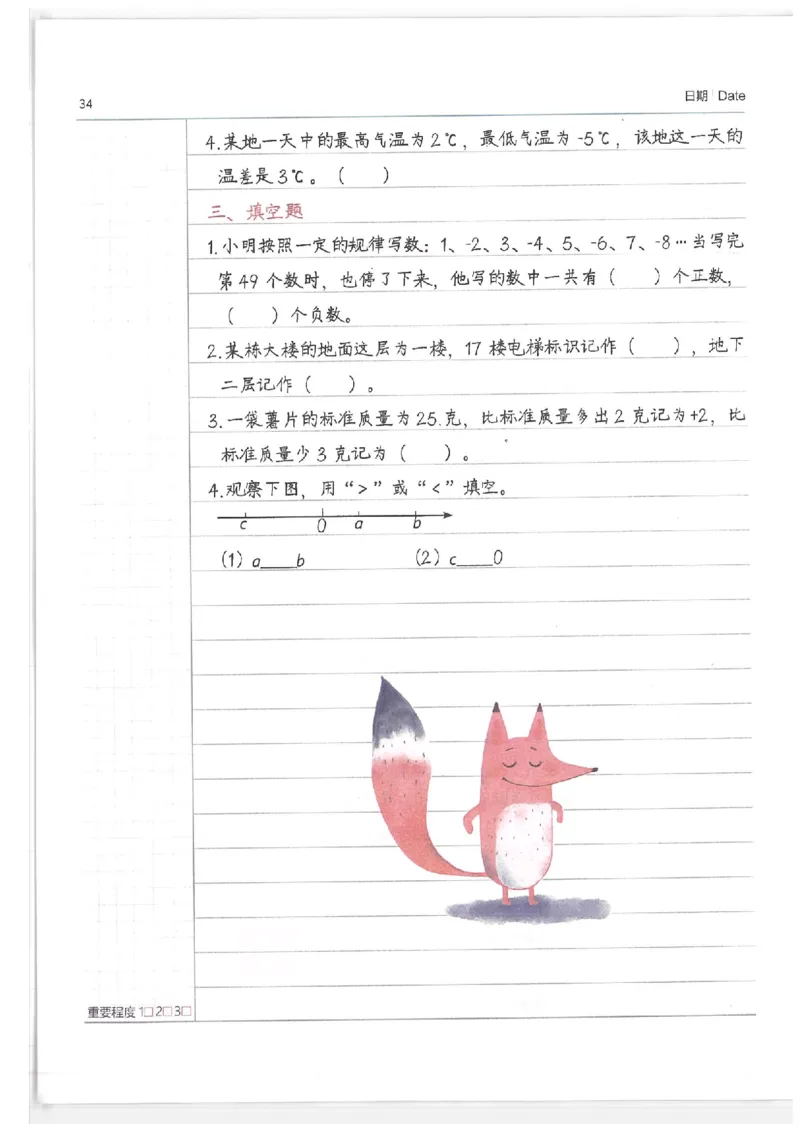 34
日期 Date
4.某地一天中的最高气温为2℃，最低气温为-5℃，该地这一天的
温差是3℃。（  ）
三、填空题
1.小明按照一定的规律写数：1、-2、3、-4、5、-6、7、-8…当写完
第49个数时，也停了下来，他写的数中一共有（  ）个正数，
（  ）个负数。
2.某栋大楼的地面这层为一楼，17楼电梯标识记作（  ），地下
二层记作（  ）。
3.一袋薯片的标准质量为25.克，比标准质量多出2克记为+2，比
标准质量少3克记为（  ）。
4.观察下图，用“>”或“<”填空。
c 0 a b
(1) a____b (2) c____0
重要程度 1□2□3□